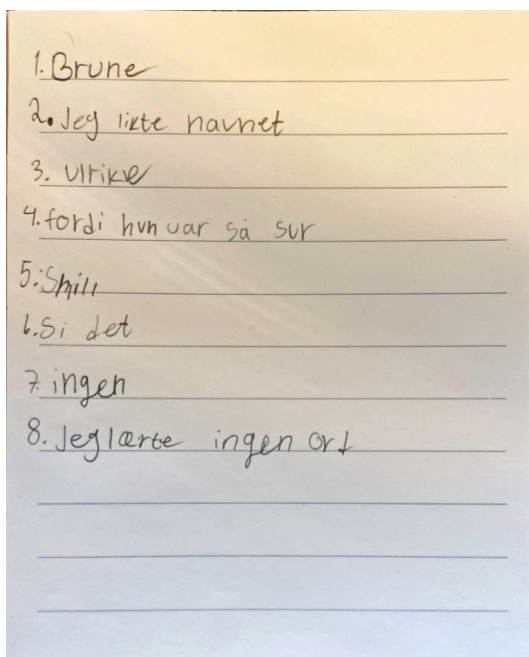 1. Brune
2. Jeg likte navnet
3. Ulrike
4. fordi hun var så sur
5. Spill
6. Si det
7. ingen
8. Jeg lærte ingen ort